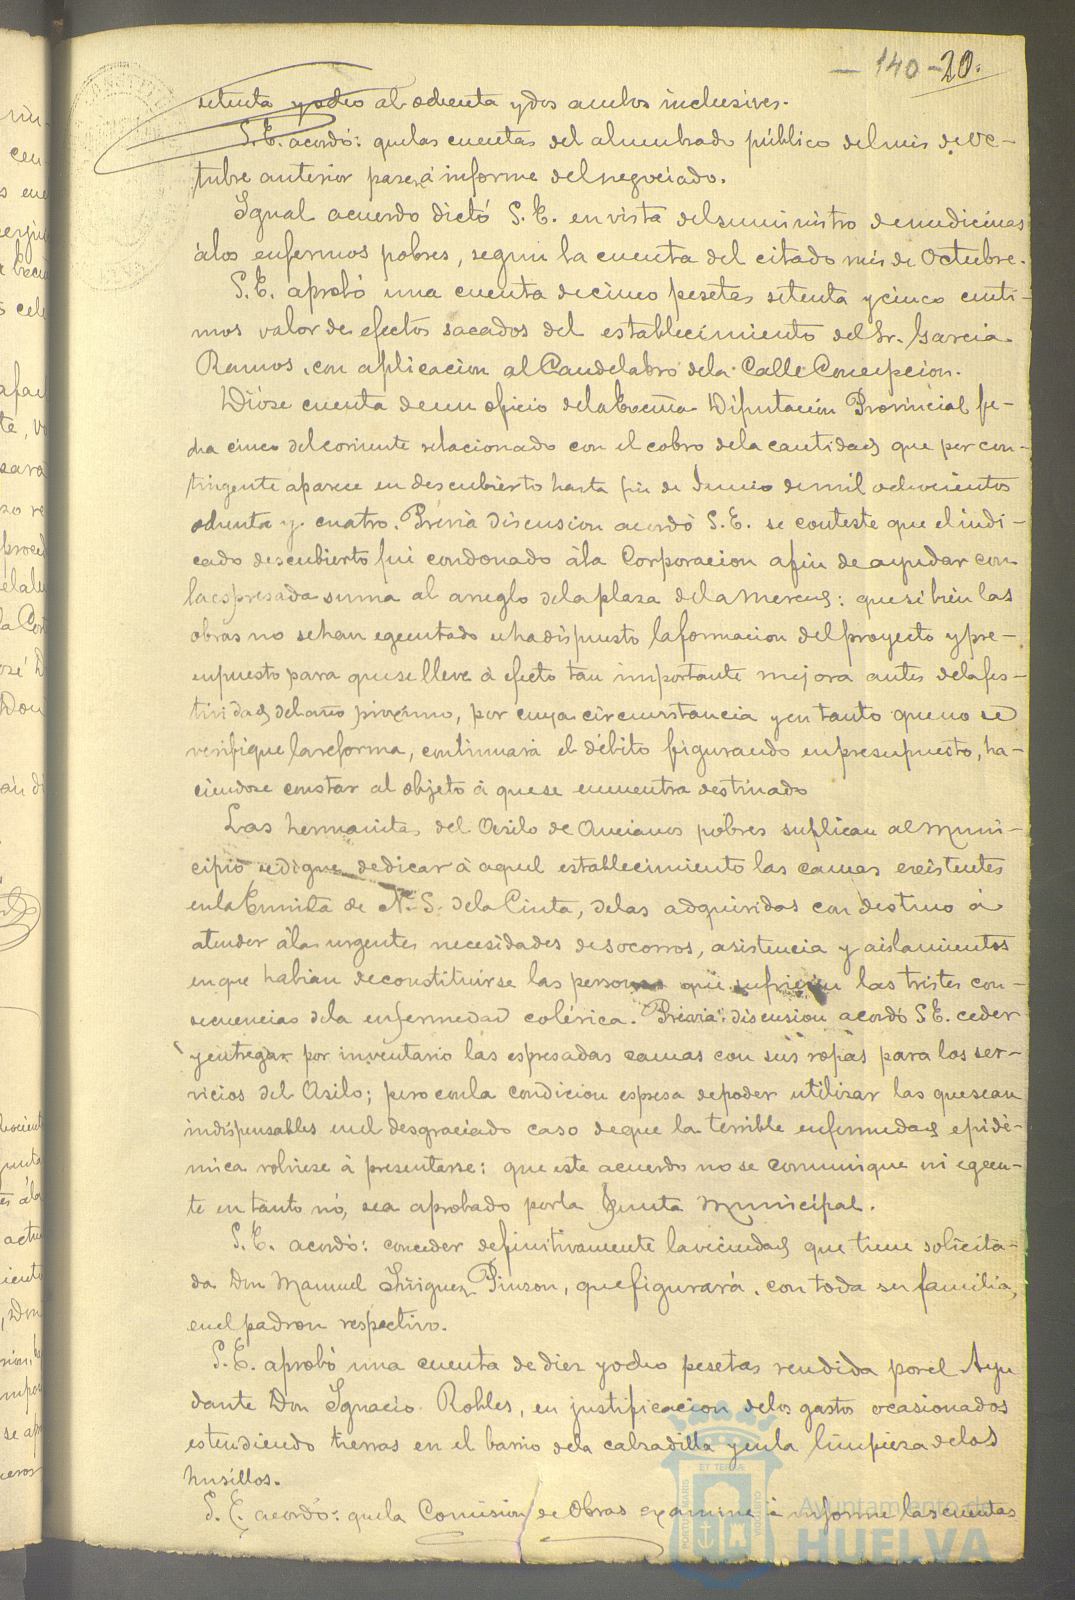 — 140 - 20.
setenta y ocho al ochenta y dos ambos inclusives.
S.E. acordó: que las cuentas del alumbrado público del mes de Oc-
tubre anterior pasen á informe del negociado.
Igual acuerdo dictó S.E. en vista del suministro de medicinas
á los enfermos pobres, segun la cuenta del citado mes de Octubre.
S.E. aprobó una cuenta de cinco pesetas setenta y cinco centi-
mos valor de efectos sacados del establecimiento del Sr. Garcia
Ramos, con aplicacion al Candelabro de la Calle Concepcion.
Dióse cuenta de un oficio de la Excma Diputacion Provincial fe-
cha cinco del corriente relacionado con el cobro de la cantidad que por con-
tingente aparece en descubierto hasta fin de Junio de mil ochocientos
ochenta y cuatro. Prévia discusion acordó S.E. se conteste que el indi-
cado descubierto fué condonado á la Corporacion a fin de ayudar con
la espresada suma al arreglo de la plaza de la Merced: que si bien las
obras no se han egecutado se ha dispuesto la formacion del proyecto y pre-
supuesto para que se lleve á efecto tan importante mejora antes de la fes-
tividad del año proximo, por cuya circunstancia y en tanto que no se
verifique la reforma, continuará el débito figurando en presupuesto, ha-
ciendose constar al objeto á que se encuentra destinado
Las hermanitas del Asilo de Ancianos pobres suplican al Muni-
cipio se digne dedicar á aquel establecimiento las camas existentes
en la Ermita de N. S. de la Cinta, de las adquiridas con destino á
atender á las urgentes necesidades de socorros, asistencia y aislamientos
en que habian de constituirse las personas que sufrieran las tristes con-
secuencias de la enfermedad colérica. Prévia discusion acordó S.E. ceder
y entregar por inventario las espresadas camas con sus ropas para los ser-
vicios del Asilo; pero con la condicion espresa de poder utilizar las que sean
indispensables en el desgraciado caso de que la terrible enfermedad epidé-
mica volviese á presentarse: que este acuerdo no se comunique ni egecu-
te en tanto nó, sea aprobado por la Junta Municipal.
S.E. acordó: conceder definitivamente la vecindad que tiene solicita-
da Don Manuel Iñiguez Pinzon, que figurará, con toda su familia,
en el padron respectivo.
S.E. aprobó una cuenta de diez y ocho pesetas rendida por el Ayu
dante Don Ignacio Robles, en justificacion de los gastos ocasionados
estendiendo tierras en el barrio de la calzadilla y en la limpieza de los
husillos.
S.E. acordó: que la Comision de Obras examine é informe las cuentas
PORTUS MARIS
ET TERRÆ
CUSTODIA
Ayuntamiento de
HUELVA